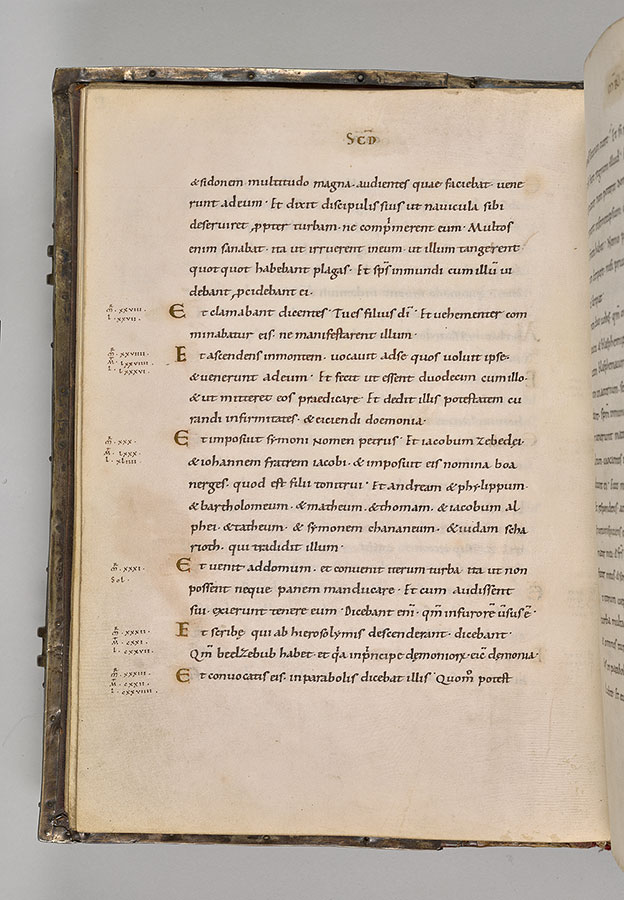 SCD
&sidonem multitudo magna · audientes quae faciebat · uene
runt adeum · Et dixit discipulis suis ut nauicula sibi
deseruiret ꝓpter turbam · ne comp̍merent eum · Multos
enim sanabat · ita ut irruerent ineum · ut illum tangerent ·
quotquot habebant plagas · Et sp̄s inmundi cum illū ui
debant ꝓcidebant ei ·
Et clamabant dicentes · Tu es filius dī · Et uehementer com
minabatur eis · ne manifestarent illum ·
Et ascendens inmontem · uocauit adse quos uoluit ipse ·
& uenerunt adeum · Et fecit ut essent duodecim cum illo ·
& ut mitteret eos praedicare · Et dedit illis potestatem cu
randi infirmitates · & eiciendi doemonia ·
Et imposuit symoni nomen petrus · Et iacobum zebedei ·
& iohannem fratrem iacobi · & imposuit eis nomina boa
nerges · quod est filii tonitrui · Et andream & phylippum ·
& bartholomeum · & matheum · & thomam · & iacobum al
phei · & tatheum · & symonem chananeum · & iudam scha
rioth · qui tradidit illum ·
Et uenit addomum · et conuenit iterum turba · ita ut non
possent neque panem manducare · Et cum audissent
sui · exierunt tenere eum · Dicebant eni̅ · qm̄ infurore uersus ē ·
Et scribe qui ab hierosolymis descenderant · dicebant ·
Qm̄ beelzebub habet · et q̍a inp̍ncipe demonioꝝ · eic̄ demonia ·
Et conuocatis eis · in parabolis dicebat illis · Quom̊ potest
R̄ · XXVIII ·
L · XXVII ·
R̄ · XXVIIII ·
M̄ · LXXVIIII ·
L · LXXXVI ·
R̄ · XXX ·
M̄ · LXXX ·
L · XLIIII ·
R̄ · XXXI ·
Sol ·
R̄ · XXXII ·
M̄ · CXXI ·
L · CXXVII ·
R̄ · XXXIII ·
M̄ · CXXII ·
L · CXXVIIII ·